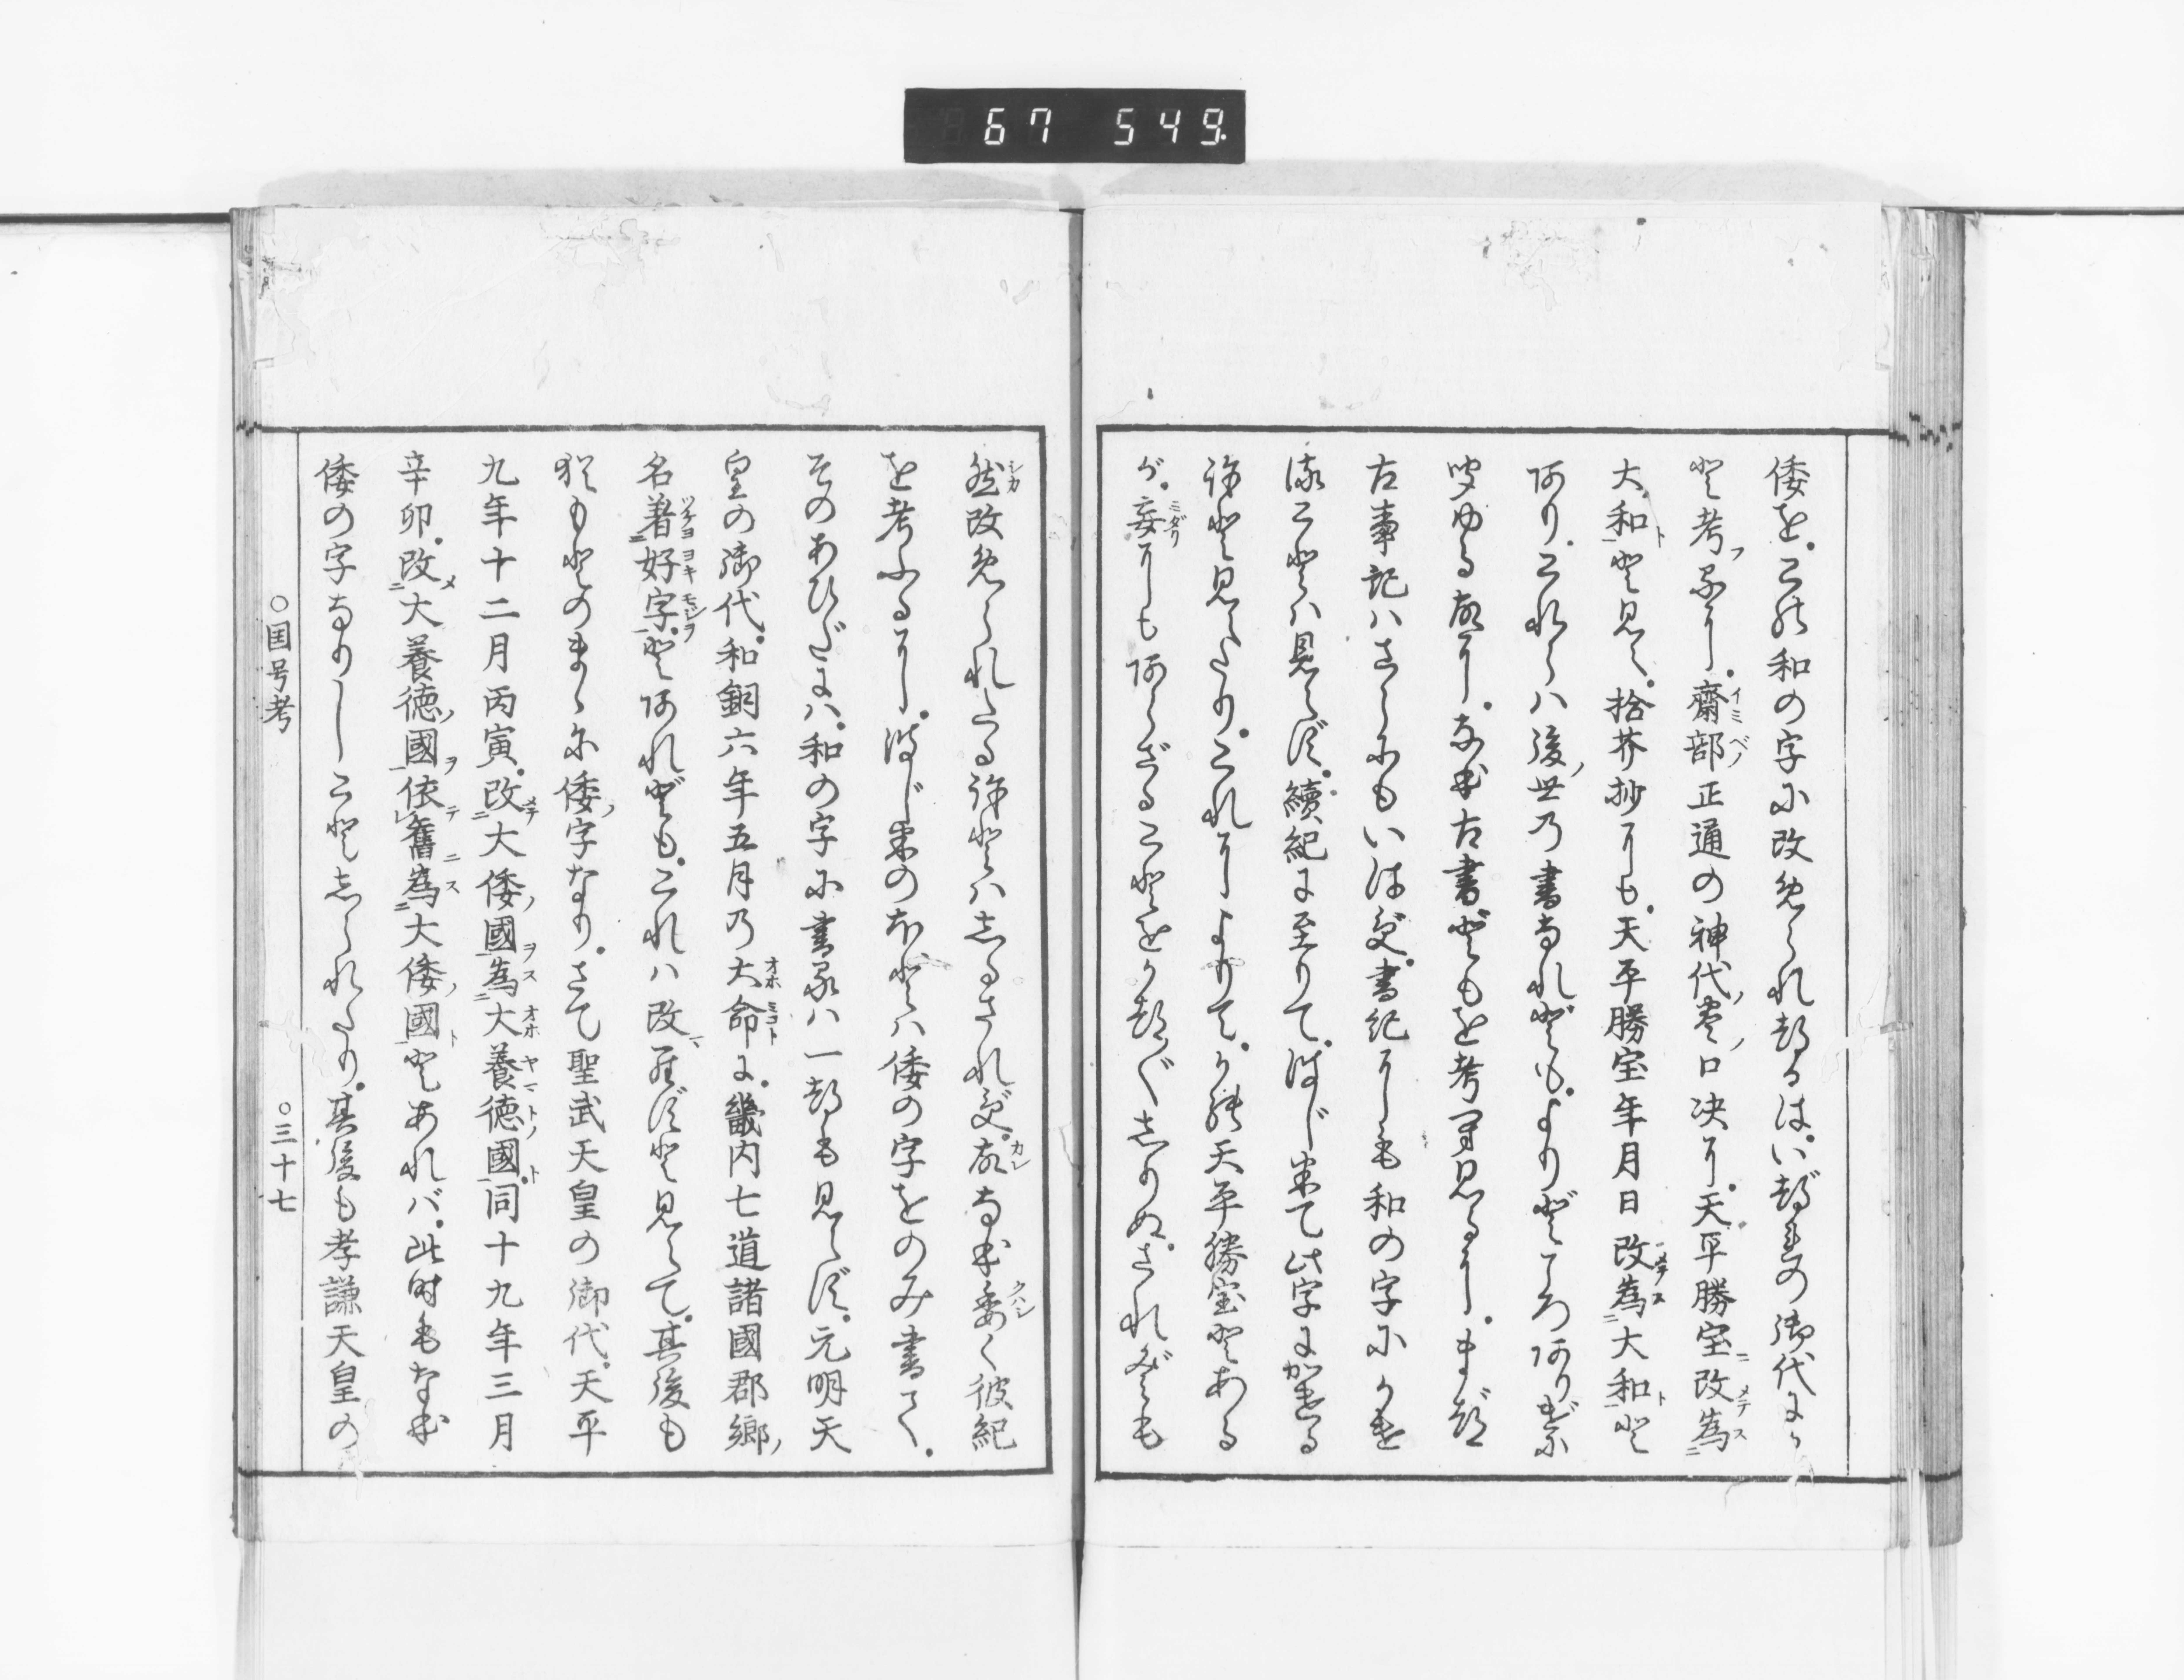 67 549.
倭を。この和の字に改められつるは。いづれの御代に
と考ふるに。齋部正通の神代巻口决に。天平勝宝改為
大和と見え。拾芥抄にも。天平勝宝年月日改為大和と
あり。これらは後世の書なれども。よりどころありげに
聞ゆる故に。なほ古書どもを考へ見るに。まづ
古事記はさらにもいはず。書紀にも和の字にかけ
ることは見えず。續紀に至りて。はじめて此字にかける
許と見えたり。これによりて。かの天平勝宝とある
が。妄にもあらざることをかつ〴〵しりぬ。されども
然改められたる許とはしるされず。故なほ委く彼紀
を考ふるに。はじめのほどは倭の字をのみ書て。
そのあひだには。和の字に書るは一つも見えず。元明天
皇の御代。和銅六年五月の大命に。畿内七道諸國郡郷
名着好字。とあれども。これは改らずと見えて。其後も
猶もとのまゝに倭字なり。さて聖武天皇の御代。天平
九年十二月丙寅。改大倭國為大養徳國。同十九年三月
辛卯。改大養徳國依舊為大倭國とあれバ。此時もなほ
倭の字なりしことしられたり。其後も孝謙天皇の
○国号考 ○三十七